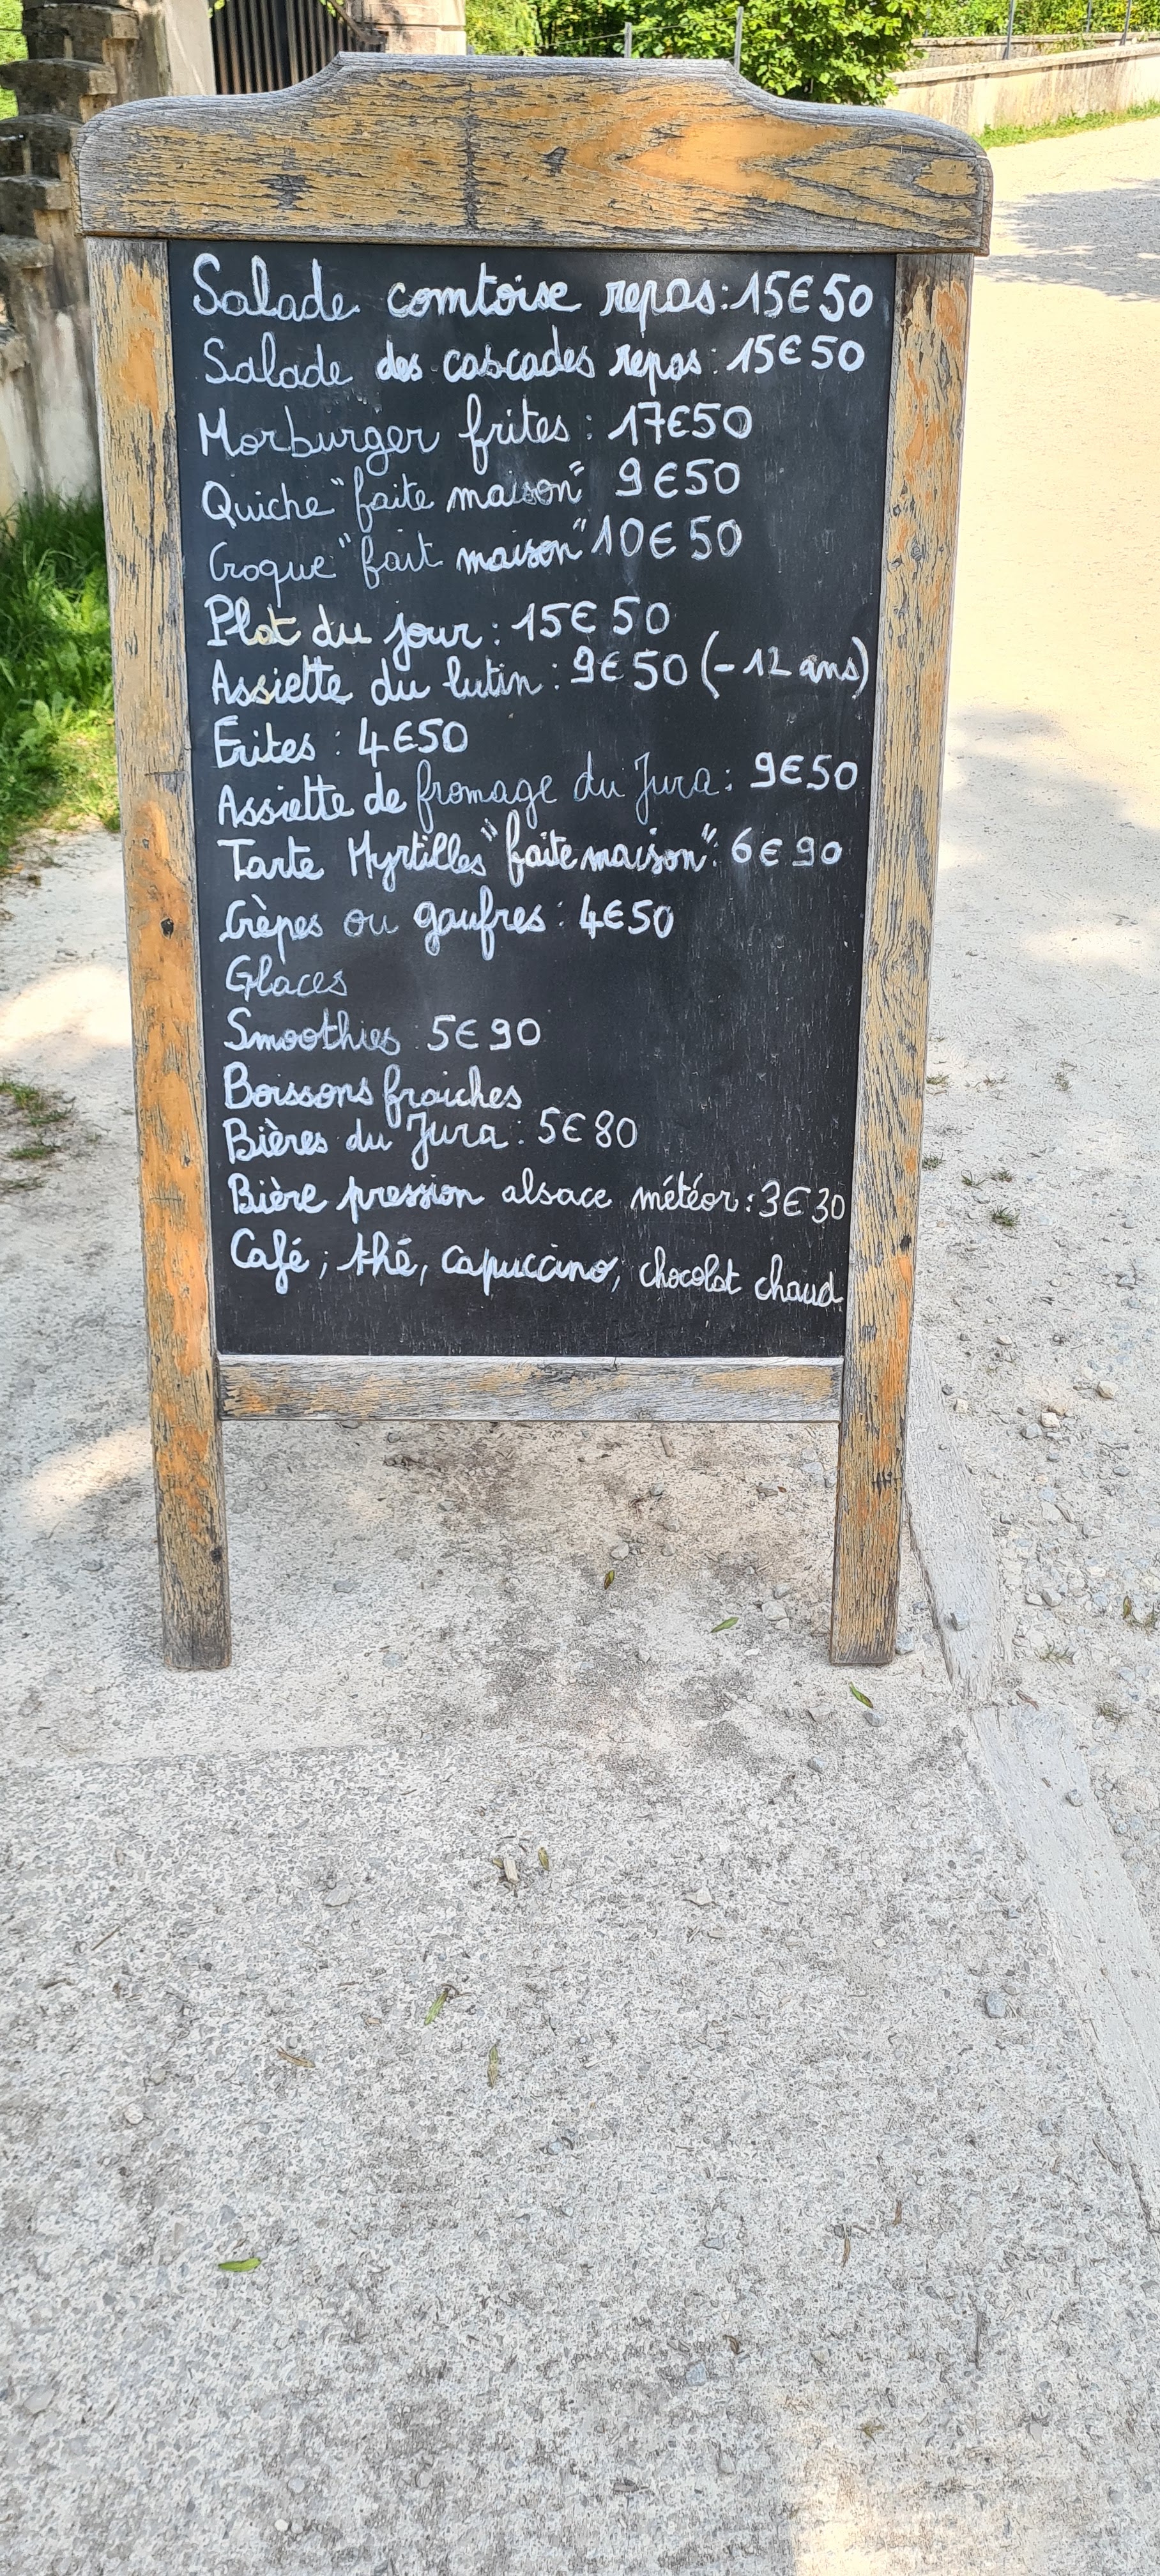 Salade comtoise repas : 15€50
Salade des cascades repas : 15€50
Morburger frites : 17€50
Quiche "faite maison" 9€50
Croque "fait maison" 10€50
Plat du jour : 15€50
Assiette du lutin : 9€50 (-12 ans)
Frites : 4€50
Assiette de fromage du Jura : 9€50
Tarte Myrtilles "faite maison" : 6€90
Crèpes ou gaufres : 4€50
Glaces
Smoothies 5€90
Boissons fraiches
Bières du Jura : 5€80
Bière pression alsace météor : 3€30
Café, thé, capuccino, chocolat chaud